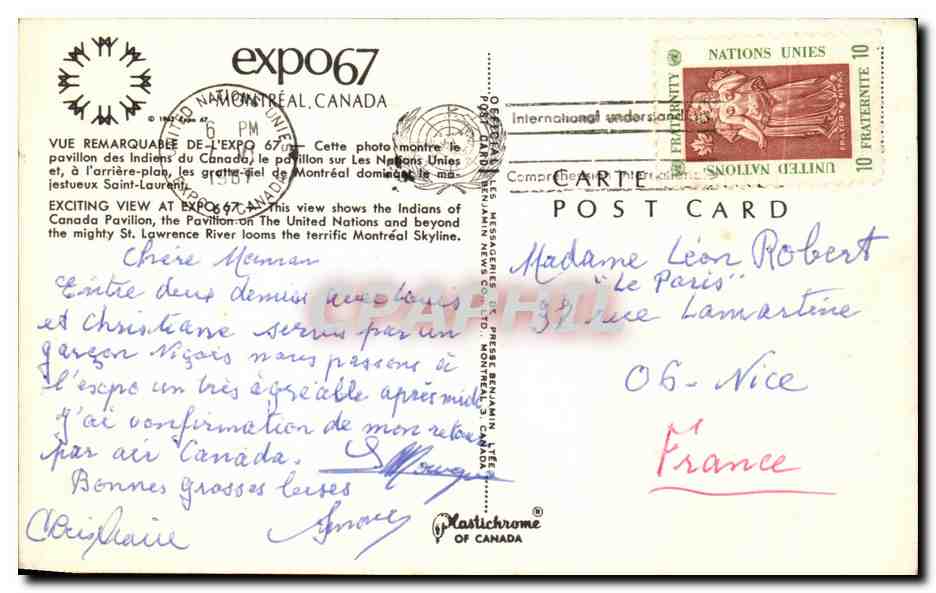 expo67
MONTRÉAL, CANADA
© 1963 Expo 67
UNITED NATIONS
NATIONS UNIES
6 PM
1967
EXPO, CANADA
VUE REMARQUABLE DE L'EXPO 67 — Cette photo montre le
pavillon des Indiens du Canada, le pavillon sur Les Nations Unies
et, à l'arrière-plan, les gratte-ciel de Montréal dominant le ma-
jestueux Saint-Laurent.
EXCITING VIEW AT EXPO 67 — This view shows the Indians of
Canada Pavilion, the Pavilion on The United Nations and beyond
the mighty St. Lawrence River looms the terrific Montréal Skyline.
Chère Maman
Entre deux demis avec Louis
et Christiane servis par un
garçon Niçois nous passons à
l'expo un très agréable après midi
J'ai confirmation de mon retour
par air Canada.
Bonnes grosses bises
Christiane
OFFICIAL POST CARD
LES MESSAGERIES DE PRESSE BENJAMIN LTÉE
BENJAMIN NEWS CO. LTD. MONTREAL 3, CANADA
Plastichrome ®
OF CANADA
International understand
Comprehension internation
NATIONS UNIES
FRATERNITY
UNITED NATIONS
FRATERNITÉ
10
10
CARTE
POST CARD
Madame Léon Robert
"Le Paris"
rue Lamartine
06-Nice
France
CPAPHIL